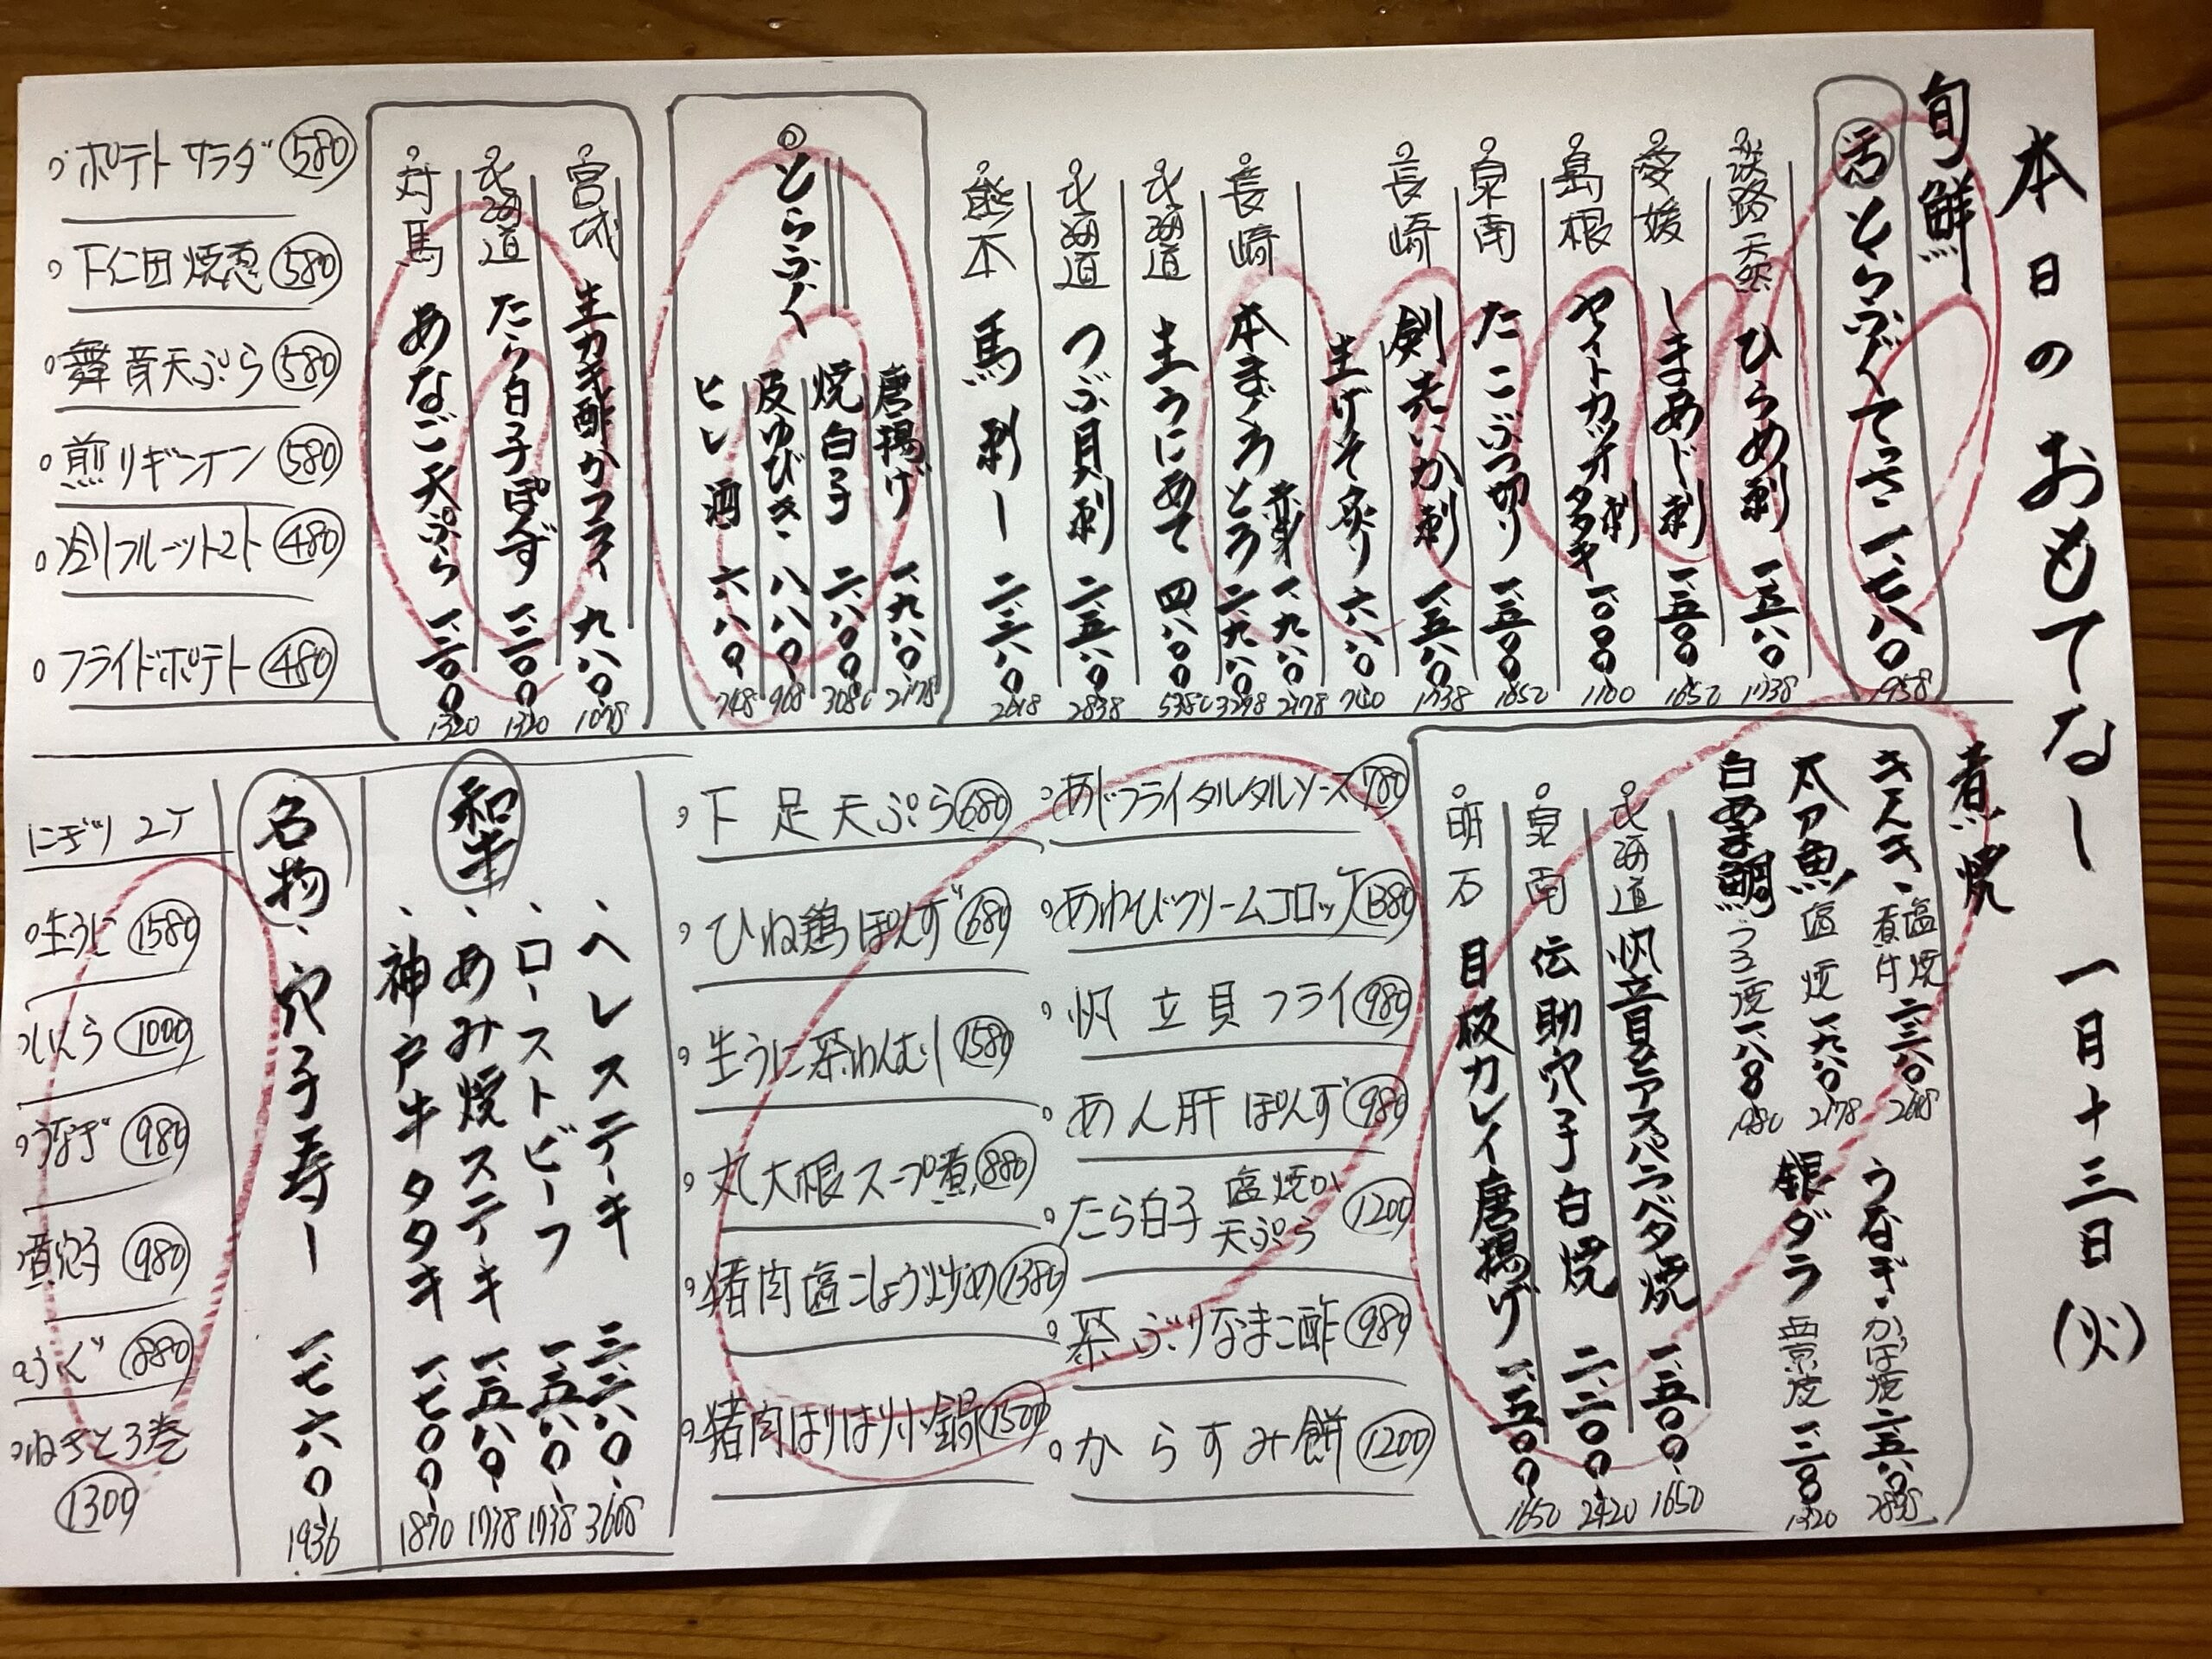 本日のおもてなし 一月十三日(火)
旬鮮
活 とらふぐてっさ 一、七八〇 1958
淡路 天然 ひらめ刺 一、五八〇 1738
愛媛 しまあじ刺 一、五〇〇 1650
島根 ヤイトカツオ 刺 タタキ 一、〇〇〇 1100
泉南 たこぶつ切り 一、五〇〇 1650
長崎 剣先いか刺 一、五八〇 1738
生げそ炙り 六八〇
長崎 本まぐろ 赤身 一、九八〇 2178
とろ 二、九八〇 3278
北海道 生うにあて 四、八〇〇
北海道 つぶ貝刺 二、五八〇 2838
熊本 馬刺し 二、三八〇 2618
とらふぐ
唐揚げ 一、九八〇 2178
焼白子 二、八〇〇 3080
皮ゆびき 八八〇 968
ヒレ酒 六八〇 748
宮城 生カキ酢かフライ 九八〇 1078
北海道 たら白子ぽんず 一、二〇〇 1320
対馬 あなご天ぷら 一、二〇〇 1320
ポテトサラダ 580
下仁田焼葱 580
舞茸天ぷら 580
煎りギンナン 580
冷しフルーツトマト 480
フライドポテト 480
煮焼
きんき 塩焼 煮付 二、三八〇 2618
太刀魚 塩焼 一、九八〇 2178
白あま鯛 一、八〇〇 1980
うなぎ かば焼 二、五八〇 2838
銀ダラ 西京焼 一、二〇〇 1320
北海道 帆立貝とアスパラバタ焼 一、五〇〇 1650
泉南 伝助穴子白焼 二、二〇〇 2420
明石 目板カレイ唐揚げ 一、五〇〇 1650
あじフライタルタルソース 780
あわびクリームコロッケ 1380
帆立貝フライ 980
あん肝ぽんず 980
たら白子 塩焼か 天ぷら 1200
茶ぶりなまこ酢 980
からすみ餅 1200
下足天ぷら 680
ひね鶏ぽんず 680
生うに茶わんむし 1580
丸大根スープ煮 880
猪肉塩こしょう炒め 1380
猪肉はりはり小鍋 1500
和牛
ヘレステーキ 三、二八〇 3608
ローストビーフ 一、五八〇 1738
あみ焼ステーキ 一、五八〇 1738
神戸牛タタキ 一、七〇〇 1870
名物 穴子寿し 一、七六〇 1936
にぎり 2ケ
生うに 1580
いくら 1000
うなぎ 980
煮穴子 980
ふぐ 880
ねぎとろ巻 1300